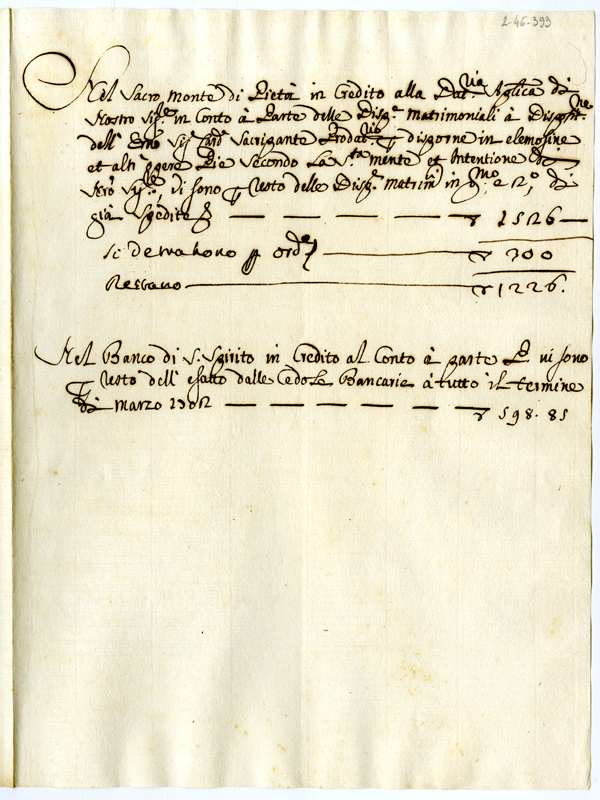 2-46-393
Nel Sacro Monte di Pietà in Credito alla Dat.ria Ap.lica di
Nostro Sig.re in Conto à Parte delle Disp.e Matrimoniali à Disposit.ne
dell' Em.o Sig.r Card.l Sacripante Prodat.rio disporne in elemosine
et altr' opere Pie Secondo La S.ta mente et Intentione di
Nro Sig.re, Vi sono Resto delle Disp.e Matrim.li in p.mo e 2.o di
già Spedite — — — — — 1526 —
Si detrahono ord.e — 300
Restano — 1226.
Nel Banco di S. Spirito in Credito al Conto à parte vi sono
Resto dell' esatto dalle Cedole Bancarie à tutto il termine
di Marzo 1702 — — — — — 598. 85